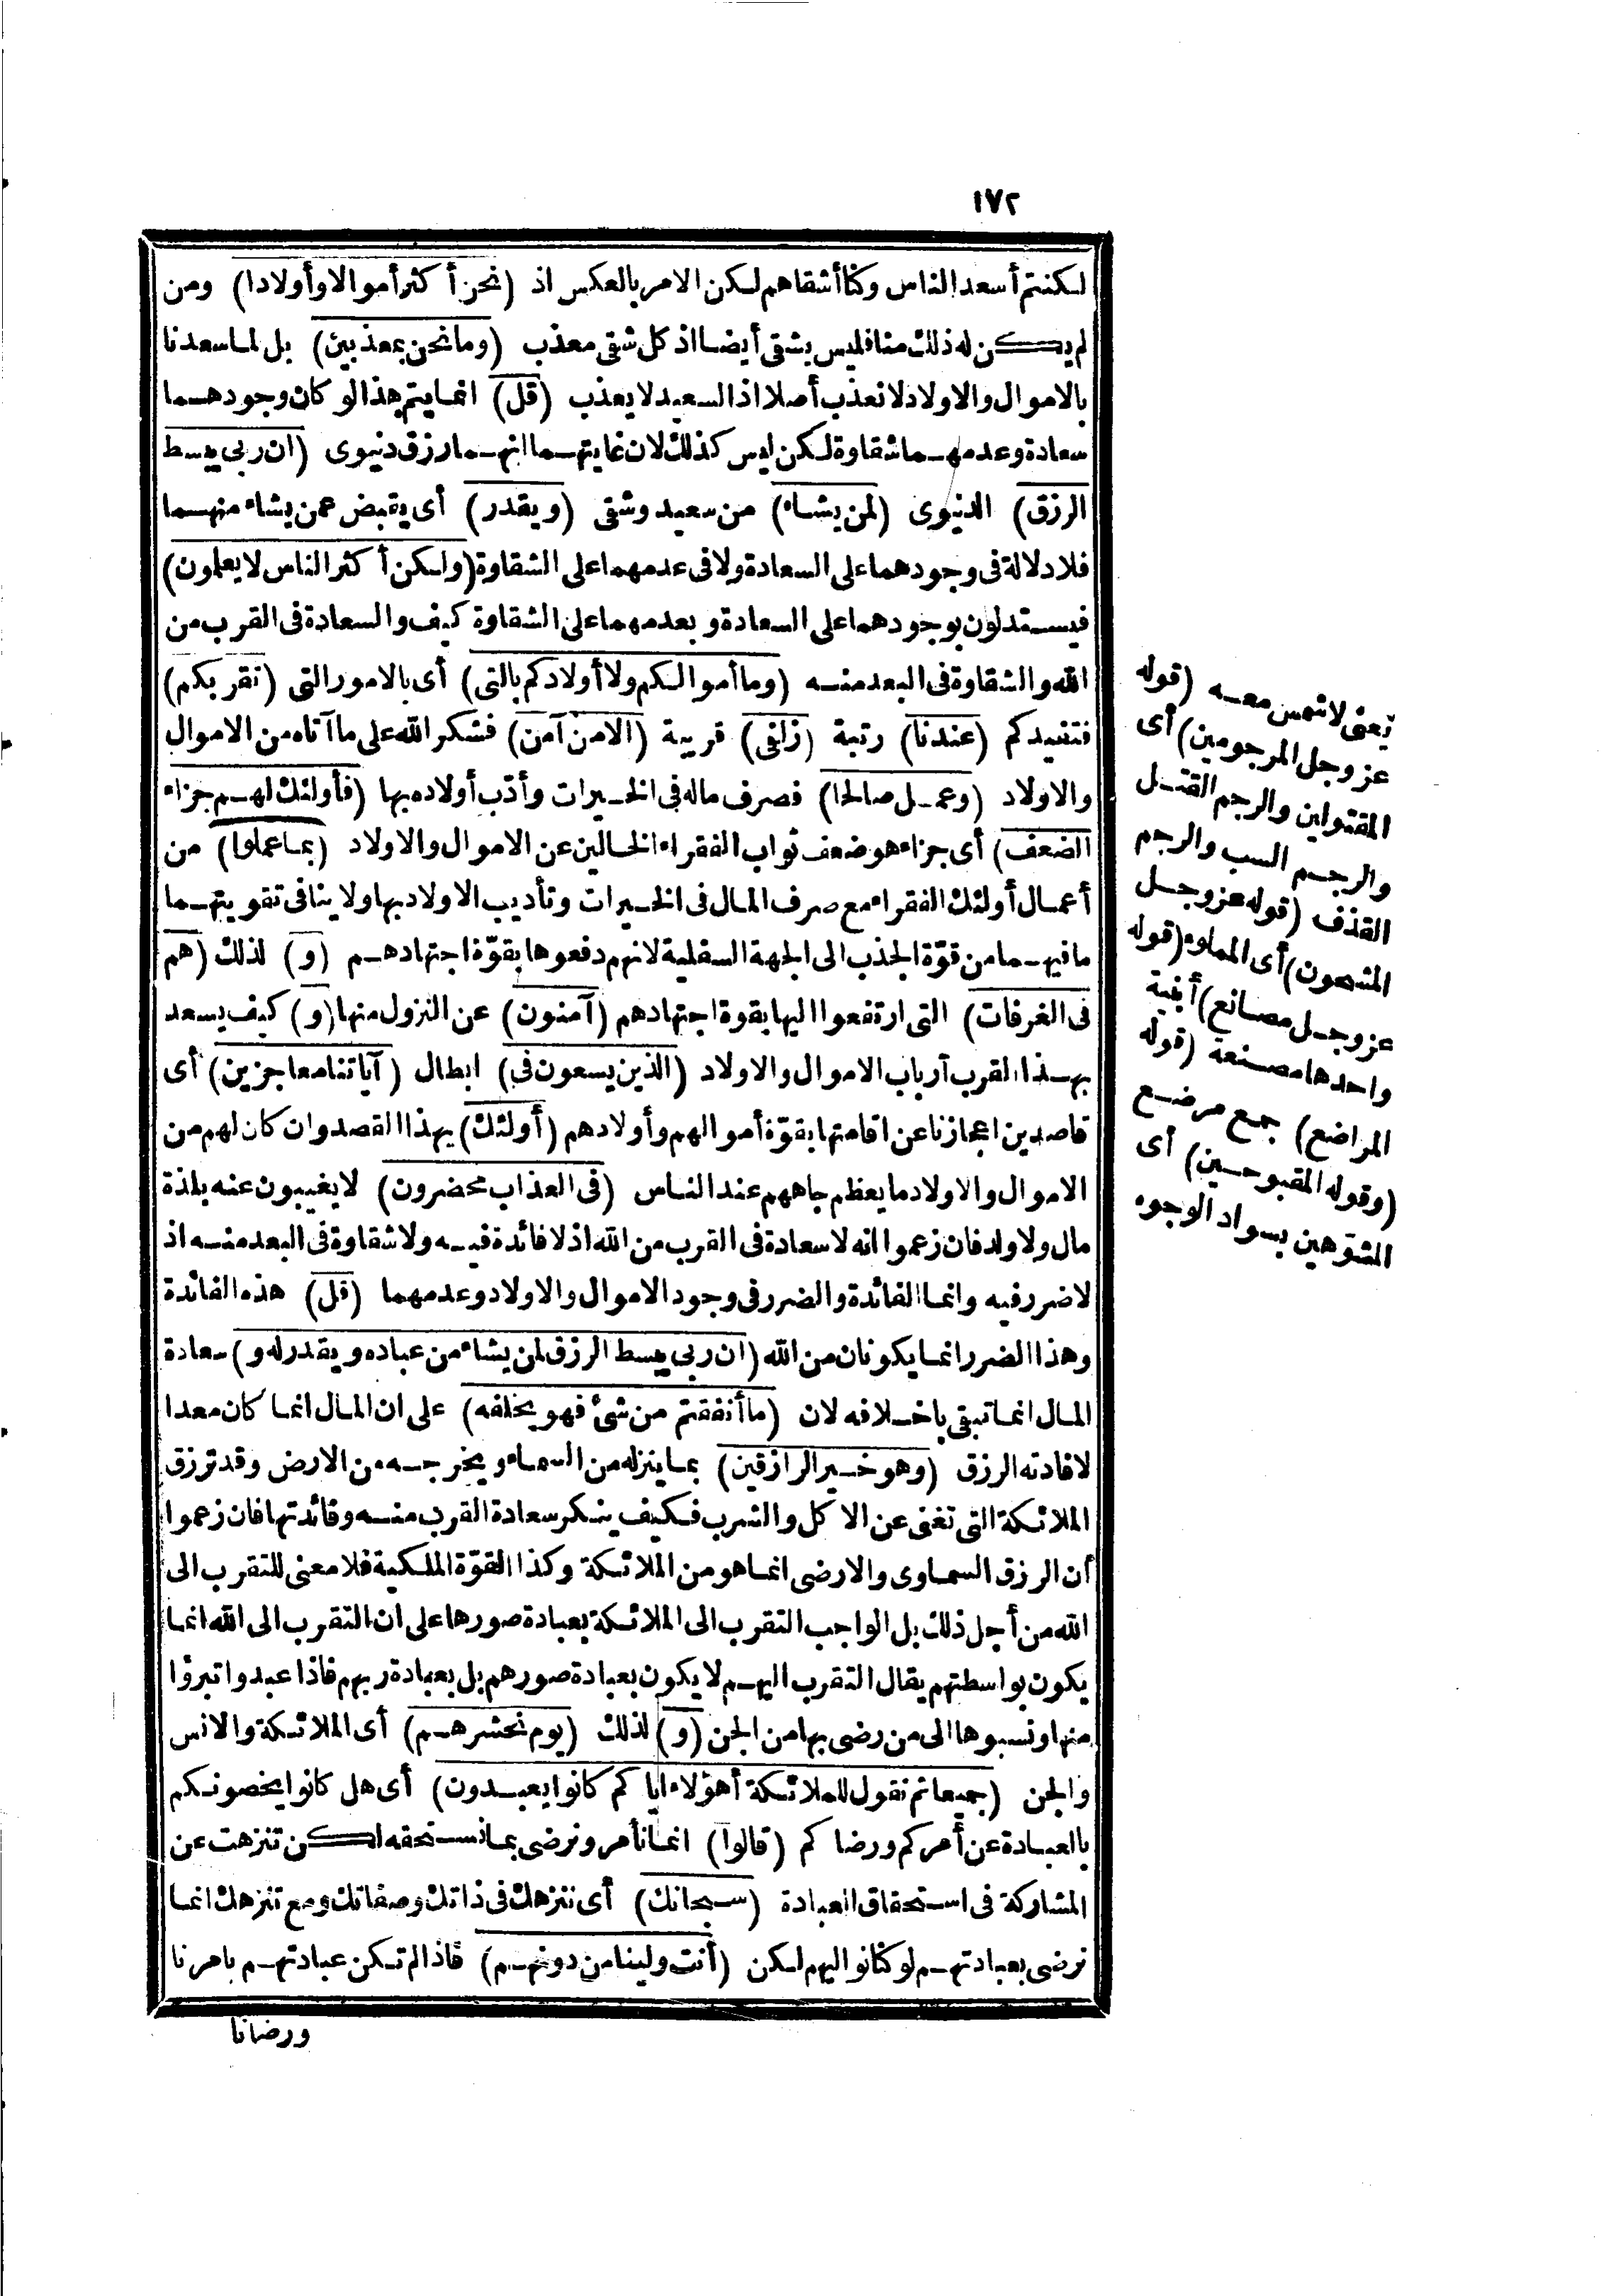 ١٧٢
لكنتم أسعد الناس وكنا أشقاهم لكن الامر بالعكس اذ (نحن أكثر أموالا وأولادا) ومن
لم يكن له ذلك منا فليس بشقى أيضا اذ كل شقى معذب (وما نحن بمعذبين) بل لما سعدنا
بالاموال والاولاد لا نعذب أصلا اذ السعيد لا يعذب (قل) انما يتم هذا لو كان وجودهما
سعادة وعدمهما شقاوة لكن ليس كذلك لان غايتهما انهما رزق دنيوى (ان ربى يبسط
الرزق) الدنيوى (لمن يشاء) من سعيد وشقى (ويقدر) أى يقبض عمن يشاء منهما
فلا دلالة فى وجودهما على السعادة ولا فى عدمهما على الشقاوة (ولكن أكثر الناس لا يعلمون)
فيستدلون بوجودهما على السعادة وبعدمهما على الشقاوة كيف والسعادة فى القرب من
الله والشقاوة فى البعد منه (وما أموالكم ولا أولادكم بالتى) أى بالامور التى (تقربكم)
فتفيدكم (عندنا) رتبة (زلفى) قريبة (الا من آمن) فشكر الله على ما آتاه من الاموال
والاولاد (وعمل صالحا) فصرف ماله فى الخيرات وأدّب أولاده بها (فأولئك لهم جزاء
الضعف) أى جزاء هو ضعف ثواب الفقراء الخالين عن الاموال والاولاد (بما عملوا) من
أعمال أولئك الفقراء مع صرف المال فى الخيرات وتأديب الاولاد بها ولا ينافى تقويتهما
ما فيهما من قوّة الجذب الى الجهة السفلية لانهم دفعوها بقوّة اجتهادهم (و) لذلك (هم
فى الغرفات) التى ارتفعوا اليها بقوة اجتهادهم (آمنون) عن النزول منها (و) كيف يسعد
بهذا القرب أرباب الاموال والاولاد (الذين يسعون فى) ابطال (آياتنا معاجزين) أى
قاصدين اعجازنا عن اقامتها بقوّة أموالهم وأولادهم (أولئك) بهذا القصد وان كان لهم من
الاموال والاولاد ما يعظم جاههم عند الناس (فى العذاب محضرون) لا يغيبون عنه بلذة
مال ولا ولد فان زعموا انه لا سعادة فى القرب من الله اذ لا فائدة فيه ولا شقاوة فى البعد منه اذ
لا ضرر فيه وانما الفائدة والضرر فى وجود الاموال والاولاد وعدمهما (قل) هذه الفائدة
وهذا الضرر انما يكونان من الله (ان ربى يبسط الرزق لمن يشاء من عباده ويقدر له و) سعادة
المال انما تبقى باخلافه لان (ما أنفقتم من شئ فهو يخلفه) على ان المال انما كان معدا
لافادته الرزق (وهو خير الرازقين) بما ينزله من السماء ويخرجه من الارض وقد ترزق
الملائكة التى تغنى عن الاكل والشرب فكيف ينكر سعادة القرب منه وفائدتها فان زعموا
أن الرزق السماوى والارضى انما هو من الملائكة وكذا القوّة الملكية فلا معنى للتقرب الى
الله من أجل ذلك بل الواجب التقرب الى الملائكة بعبادة صورها على ان التقرب الى الله انما
يكون بواسطتهم يقال التقرب اليهم لا يكون بعبادة صورهم بل بعبادة ربهم فاذا عبدوا تبرؤا
منها ونسبوها الى من رضى بها من الجن (و) لذلك (يوم نحشرهم) أى الملائكة والانس
والجن (جميعا ثم نقول للملائكة أهؤلاء اياكم كانوا يعبدون) أى هل كانوا يخصونكم
بالعبادة عن أمركم ورضاكم (قالوا) انما نأمر ونرضى بما نستحقه لكن تنزهت عن
المشاركة فى استحقاق العبادة (سبحانك) أى ننزهك فى ذاتك وصفاتك ومع تنزهك انما
نرضى بعبادتهم لو كنا نواليهم لكن (أنت ولينا من دونهم) فاذا لم تكن عبادتهم بامرنا
ورضانا
يعنى لا شمس معه (قوله
عز وجل المرجومين) أى
المقتولين والرجم القتل
والرجم السب والرجم
القذف (قوله عز وجل
المشحون) أى المملوء (قوله
عز وجل مصانع) أبنية
واحدها مصنعة (قوله
المراضع) جمع مرضع
(وقوله المقبوحين) أى
المشوّهين بسواد الوجوه